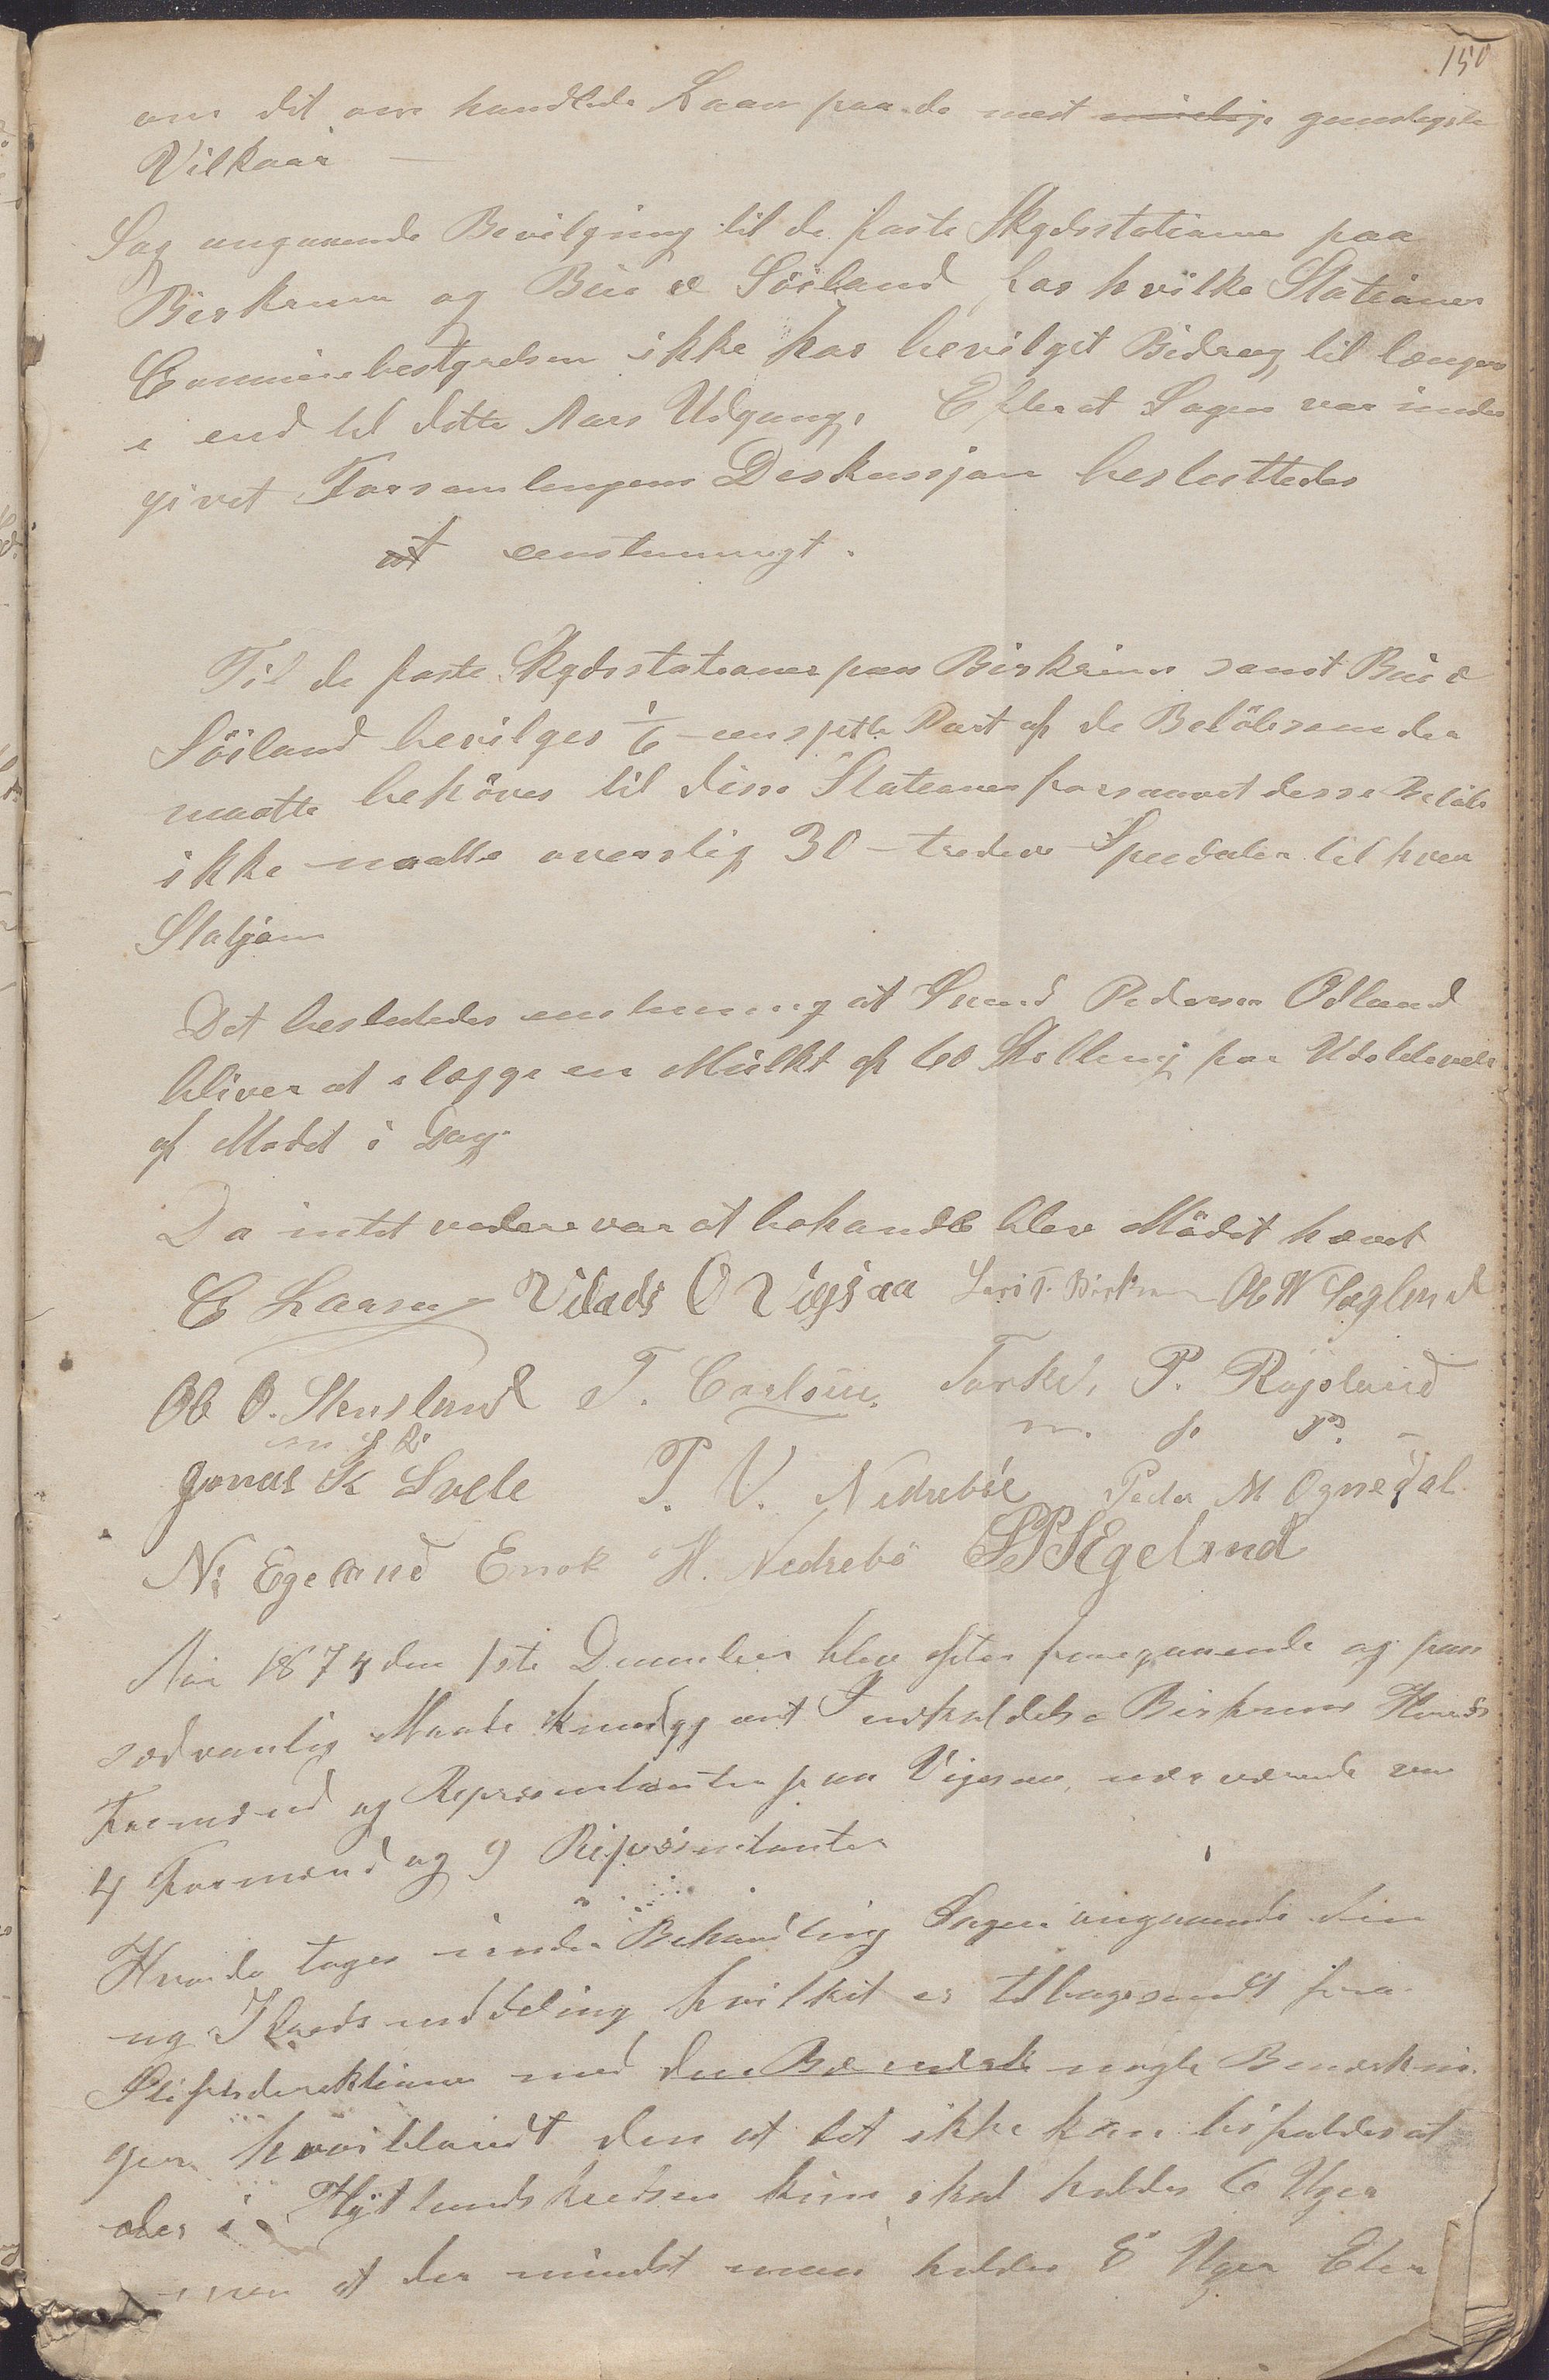 150
om det om handlede Laan paa de mest gunstigste
Vilkaar —
Sag angaaende Bevilgning til de faste Skydsstationer paa
Birkrem og Bue & Söiland for hvilke Stationer
Communebestyrelsen ikke har bevilget Bidrag til længer
e end til dette Aars Udgang. Efter at Sagen var under
givet Forsamlingens Deskussjon besluttedes
at eenstemmigt.
Til de faste Skydsstationer paa Birkrem samt Bue &
Söiland bevilges 1/6 – en sjette Part af de Belöb som der
maatte behöves til disse Stationer forsaavet desse Belöb
ikke maatte overstig 30 – tredeve Speedaler til hver
Statjon
Det besluttedes enstemmig at Svend Pedersen Ödland
bliver at elegge en Mulkt af 60 Skelling for Udeblevelse
af Mödet i Dag.
Da intet vedere var at behandle blev Mödet hævet
E Laarsen Vilads O Vigsaa Lars T. Birkrem Ole N Løgland
Ole O. Stensland T. Carlsen. Torkel, P. Røysland
m. f. P.
Jonas K Svele T. V. Nedreböe Peder M. Ognedal
N: Egeland Enok H. Nedrebö SPS Egeland
Aar 1874 den 1ste December blev efter foregaaende og paa
sædvanlig Maade kundgjort Indkaldelse Birkrems Herreds
Formænd og Repræsentanter paa Vigesaa, nærværende var
4 Formænd og 9 Repræsentanter
Hvorda toges under Behandling Sagen angaaende den
ny Kredsinddeling hvilket er tilbagesendt fra
Stiftsdirektionen med den nogle Bemerknin
ger hvoriblandt den at det ikke kan bifaldes at
der i Hytlandskredsen kun skal holdes 6 Uger
men at der mindst maa holdes 8 Uger Efter